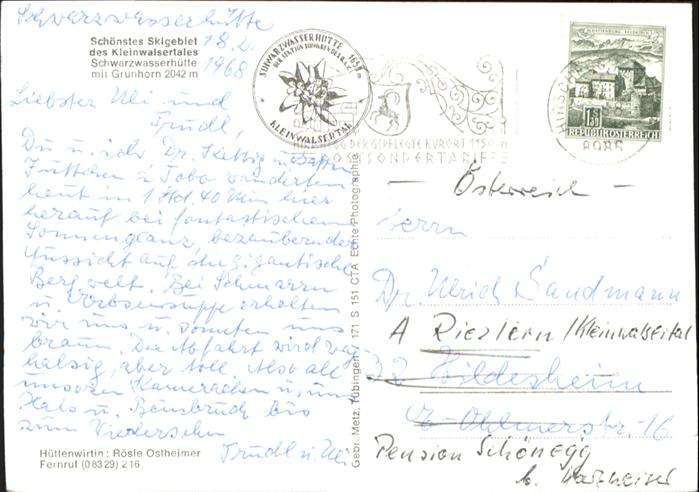 Schwarzwasserhütte
Schönstes Skigebiet
des Kleinwalsertales
Schwarzwasserhütte
mit Grünhorn 2042 m
18. 2.
1968
Liebster Uli und
Trudl,
Du u. ich, Dr.
u. Tobo wanderten
heut in 1 Std. 40 Min hier
herauf bei fantastischem
Sonnenglanz, bezaubernder
Aussicht auf die gigantische
Bergwelt. Bei Schmarrn
u. Erbsensuppe erholten
wir uns u. sonnten uns
braun. Die Abfahrt wird
halsig, aber toll. Also all
unseren u. uns
Hals u. Beinbruch bis
zum Wiedersehn
Trudl u. Uli
Hüttenwirtin: Rösle Ostheimer
Fernruf (08329) 216
Gebr. Metz, Tübingen / 171 S 151 CTA Echte Photographie
SCHWARZWASSERHÜTTE 1651 m
DER SEKTION SCHWABEN DES A.V.
KLEINWALSERTAL
DER GEPFLEGTE KURORT 1150 m
SONDERTARIFE
HIRSCHEGG
6985
1.50
REPUBLIK ÖSTERREICH
— Österreich —
Herrn
Dr. Ulrich Sandmann
A Riezlern / Kleinwalsertal
32 Hildesheim
Ohlmerstr. 16
Pension Schönegg
b.